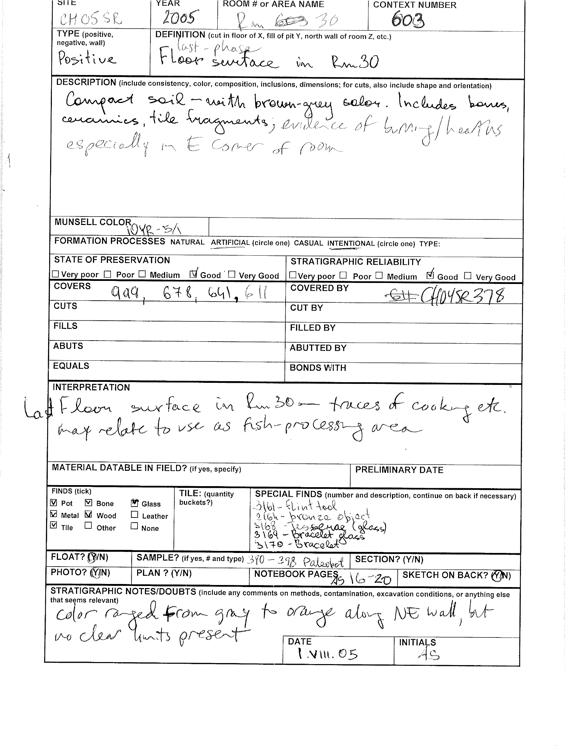 SITE YEAR ROOM # or AREA NAME CONTEXT NUMBER
CH05SR 2005 Rm 603 30 603
TYPE (positive, negative, wall) DEFINITION (cut in floor of X, fill of pit Y, north wall of room Z, etc.)
last-phase
Positive Floor surface in Rm30
DESCRIPTION (include consistency, color, composition, inclusions, dimensions; for cuts, also include shape and orientation)
Compact soil - with brown-grey color. Includes bones,
ceramics, tile fragments; evidence of burning/hearths
especially in E corner of room
MUNSELL COLOR 10YR-5/1
FORMATION PROCESSES NATURAL ARTIFICIAL (circle one) CASUAL INTENTIONAL (circle one) TYPE:
STATE OF PRESERVATION STRATIGRAPHIC RELIABILITY
Very poor Poor Medium Good Very Good Very poor Poor Medium Good Very Good
COVERS 999, 678, 641, 611 COVERED BY CH04SR378
CUTS CUT BY
FILLS FILLED BY
ABUTS ABUTTED BY
EQUALS BONDS WITH
INTERPRETATION
Last Floor surface in Rm 30 - traces of cooking etc.
may relate to use as fish-processing area
MATERIAL DATABLE IN FIELD? (if yes, specify) PRELIMINARY DATE
FINDS (tick) TILE: (quantity buckets?) SPECIAL FINDS (number and description, continue on back if necessary)
Pot Bone Glass
Metal Wood Leather
Tile Other None
3161 - flint tool
3164 - bronze object
3168 - Tesserae (glass)
3169 - Bracelet glass
3170 - Bracelet
FLOAT? (Y/N) SAMPLE? (if yes, # and type) 390-398 Paleobot SECTION? (Y/N)
PHOTO? (Y/N) PLAN? (Y/N) NOTEBOOK PAGES AS 16-20 SKETCH ON BACK? (Y/N)
STRATIGRAPHIC NOTES/DOUBTS (include any comments on methods, contamination, excavation conditions, or anything else
that seems relevant)
color ranged from gray to orange along NE wall, but
no clear limits present
DATE INITIALS
1.VIII.05 AS